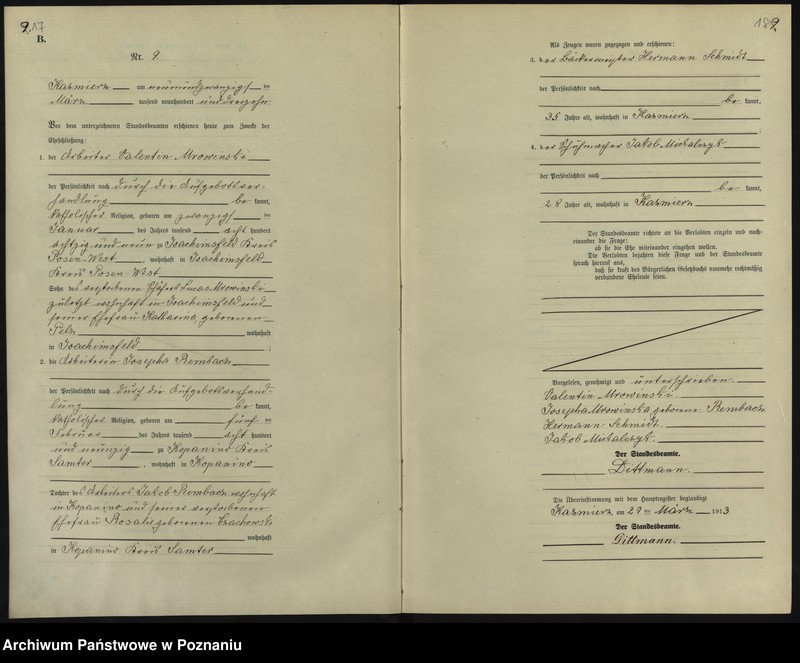 9.17
B.
Nr. 9
Kazmierz am neunundzwanzigsten
März tausend neunhundert und dreizehn
Vor dem unterzeichneten Standesbeamten erschienen heute zum Zwecke der
Eheschließung:
1. der Arbeiter Valentin Mrowinski
der Persönlichkeit nach durch die Aufgebotsver-
handlung be kannt,
katholischer Religion, geboren am zwanzigsten
Januar des Jahres tausend acht hundert
achtzig und neun zu Joachimsfeld Kreis
Posen-West, wohnhaft in Joachimsfeld
Kreis Posen-West
Sohn des verstorbenen Schäfers Lucas Mrowinski
zuletzt wohnhaft in Joachimsfeld und
seiner Ehefrau Katharina geborenen
Pelz wohnhaft
in Joachimsfeld ;
2. die Arbeiterin Josepha Rembach
der Persönlichkeit nach durch die Aufgebotsverhand-
lung be kannt,
katholischer Religion, geboren am fünften
Februar des Jahres tausend acht hundert
und neunzig zu Kopanino Kreis
Samter, wohnhaft in Kopanino
Tochter des Arbeiters Jakob Rembach wohnhaft
in Kopanino und seiner verstorbenen
Ehefrau Rosalie geborenen Czachowski
wohnhaft
in Kopanino Kreis Samter
9
Als Zeugen waren zugezogen und erschienen:
3. der Bäckermeister Hermann Schmidt
der Persönlichkeit nach
be kannt,
35 Jahre alt, wohnhaft in Kazmierz
;
4. der Schuhmacher Jakob Michalczyk
der Persönlichkeit nach
be kannt,
28 Jahre alt, wohnhaft in Kazmierz
Der Standesbeamte richtete an die Verlobten einzeln und nach-
einander die Frage:
ob sie die Ehe miteinander eingehen wollen.
Die Verlobten bejahten diese Frage und der Standesbeamte
sprach hierauf aus,
daß sie kraft des Bürgerlichen Gesetzbuchs nunmehr rechtmäßig
verbundene Eheleute seien.
Vorgelesen, genehmigt und unterschrieben.
Valentin Mrowinski.
Josepha Mrowinska geborene Rembach
Hermann Schmidt.
Jakob Michalczyk.
Der Standesbeamte.
Dittmann.
Die Übereinstimmung mit dem Hauptregister beglaubigt
Kazmierz am 29ten März 1913
Der Standesbeamte.
Dittmann.
Archiwum Państwowe w Poznaniu